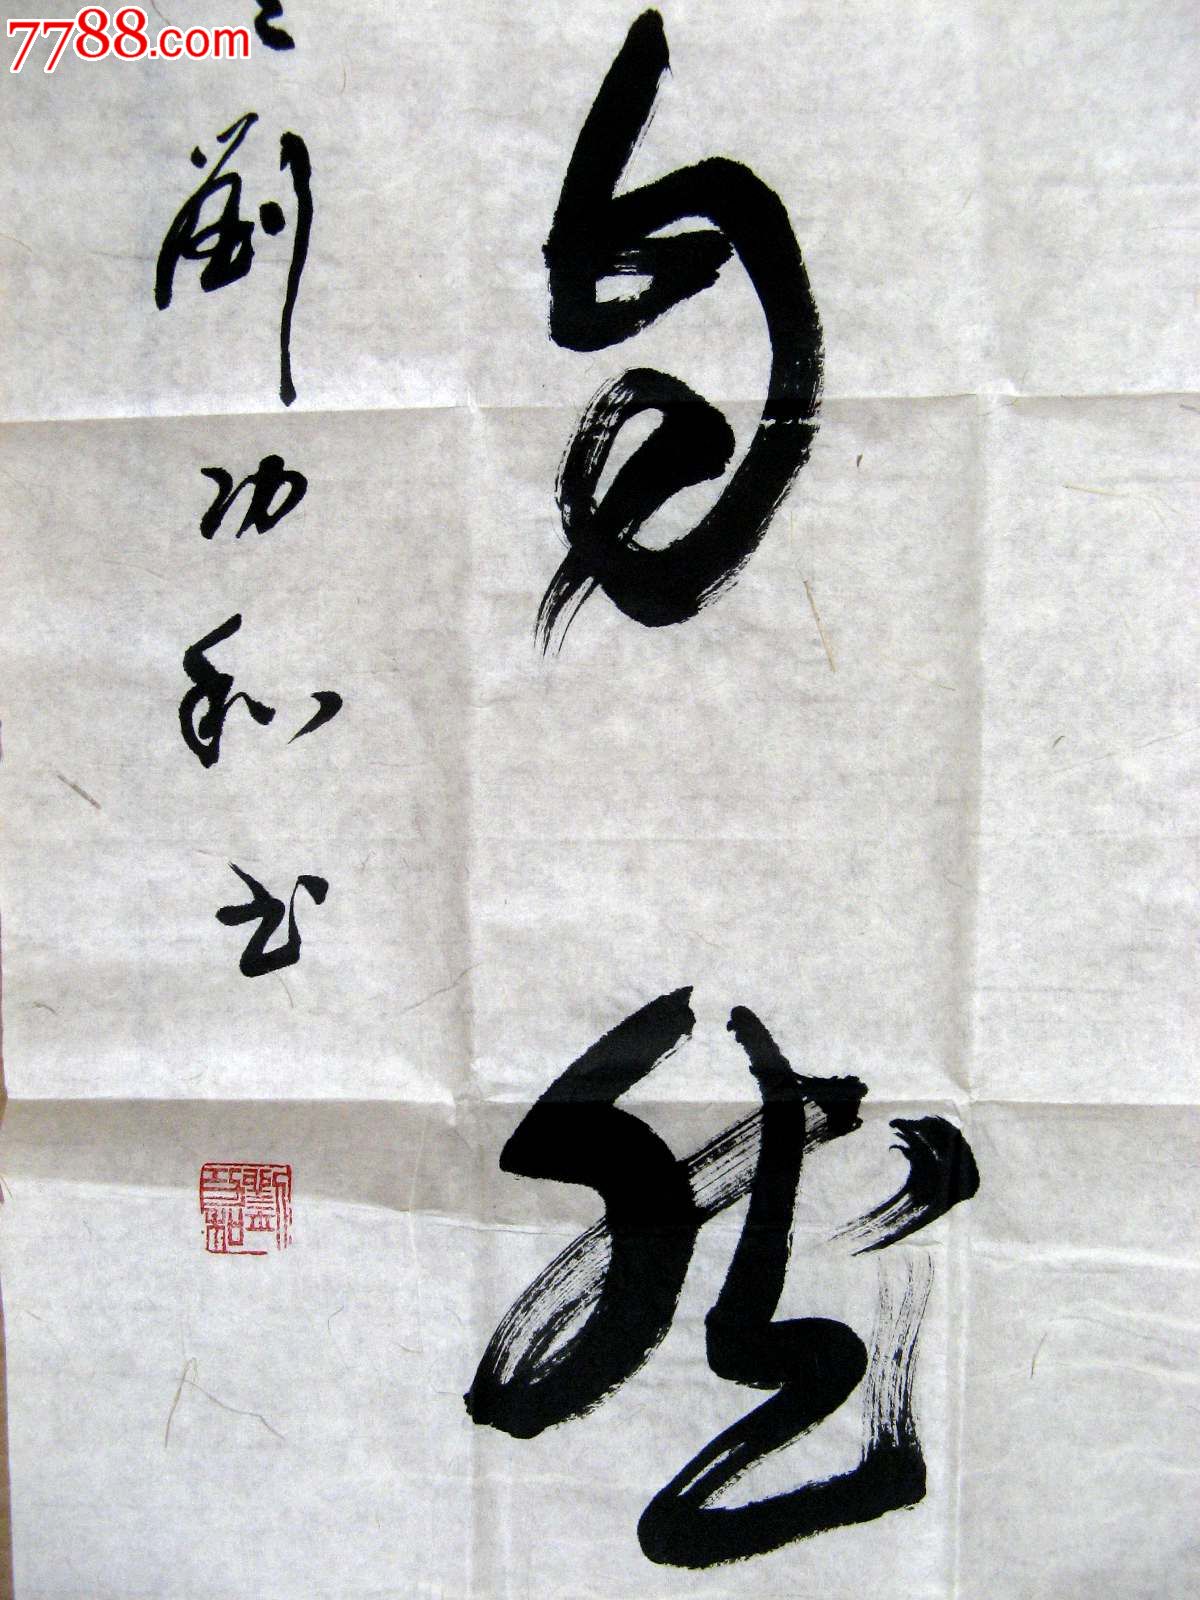 7788.com
自然
劉功和书